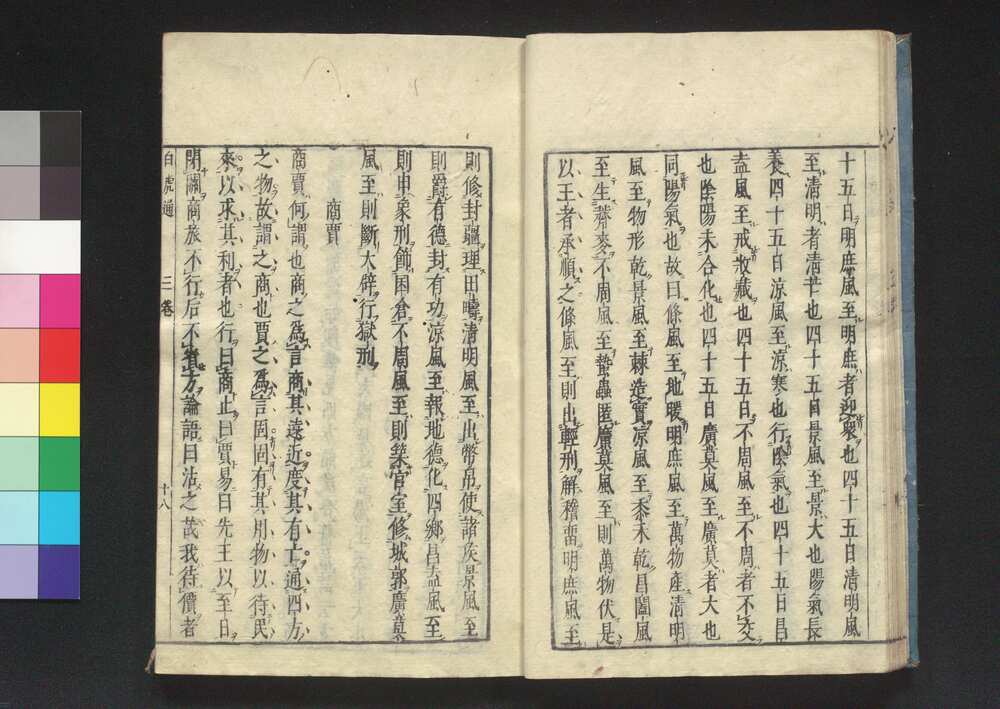 十五日明庶風至明庶者迎衆也四十五日清明風
至清明者清芒也四十五日景風至景大也陽氣長
養四十五日涼風至涼寒也行陰氣也四十五日昌
盍風至戒收藏也四十五日不周風至不周者不交
也陰陽未合化也四十五日廣莫風至廣莫者大也
同陽氣也故曰條風至地暖明庶風至萬物產清明
風至物形乾景風至棘造實涼風至黍禾乾昌闔風
至生薺麥不周風至蟄蟲匿廣莫風至則萬物伏是
以王者承順之條風至則出輕刑解稽留明庶風至
則修封疆理田疇清明風至出幣帛使諸侯景風至
則爵有德封有功涼風至報地德化四鄉昌盍風至
則申象刑飾囷倉不周風至則築宮室修城郭廣莫
風至則斷大辟行獄刑
商賈
商賈何謂也商之爲言商其遠近度其有亡通四方
之物故謂之商也賈之爲言固固有其用物以待民
來以求其利者也行曰商止曰賈易曰先王以至日
閉關商旅不行后不省方論語曰沽之哉我待價者
白虎通 三卷 十八